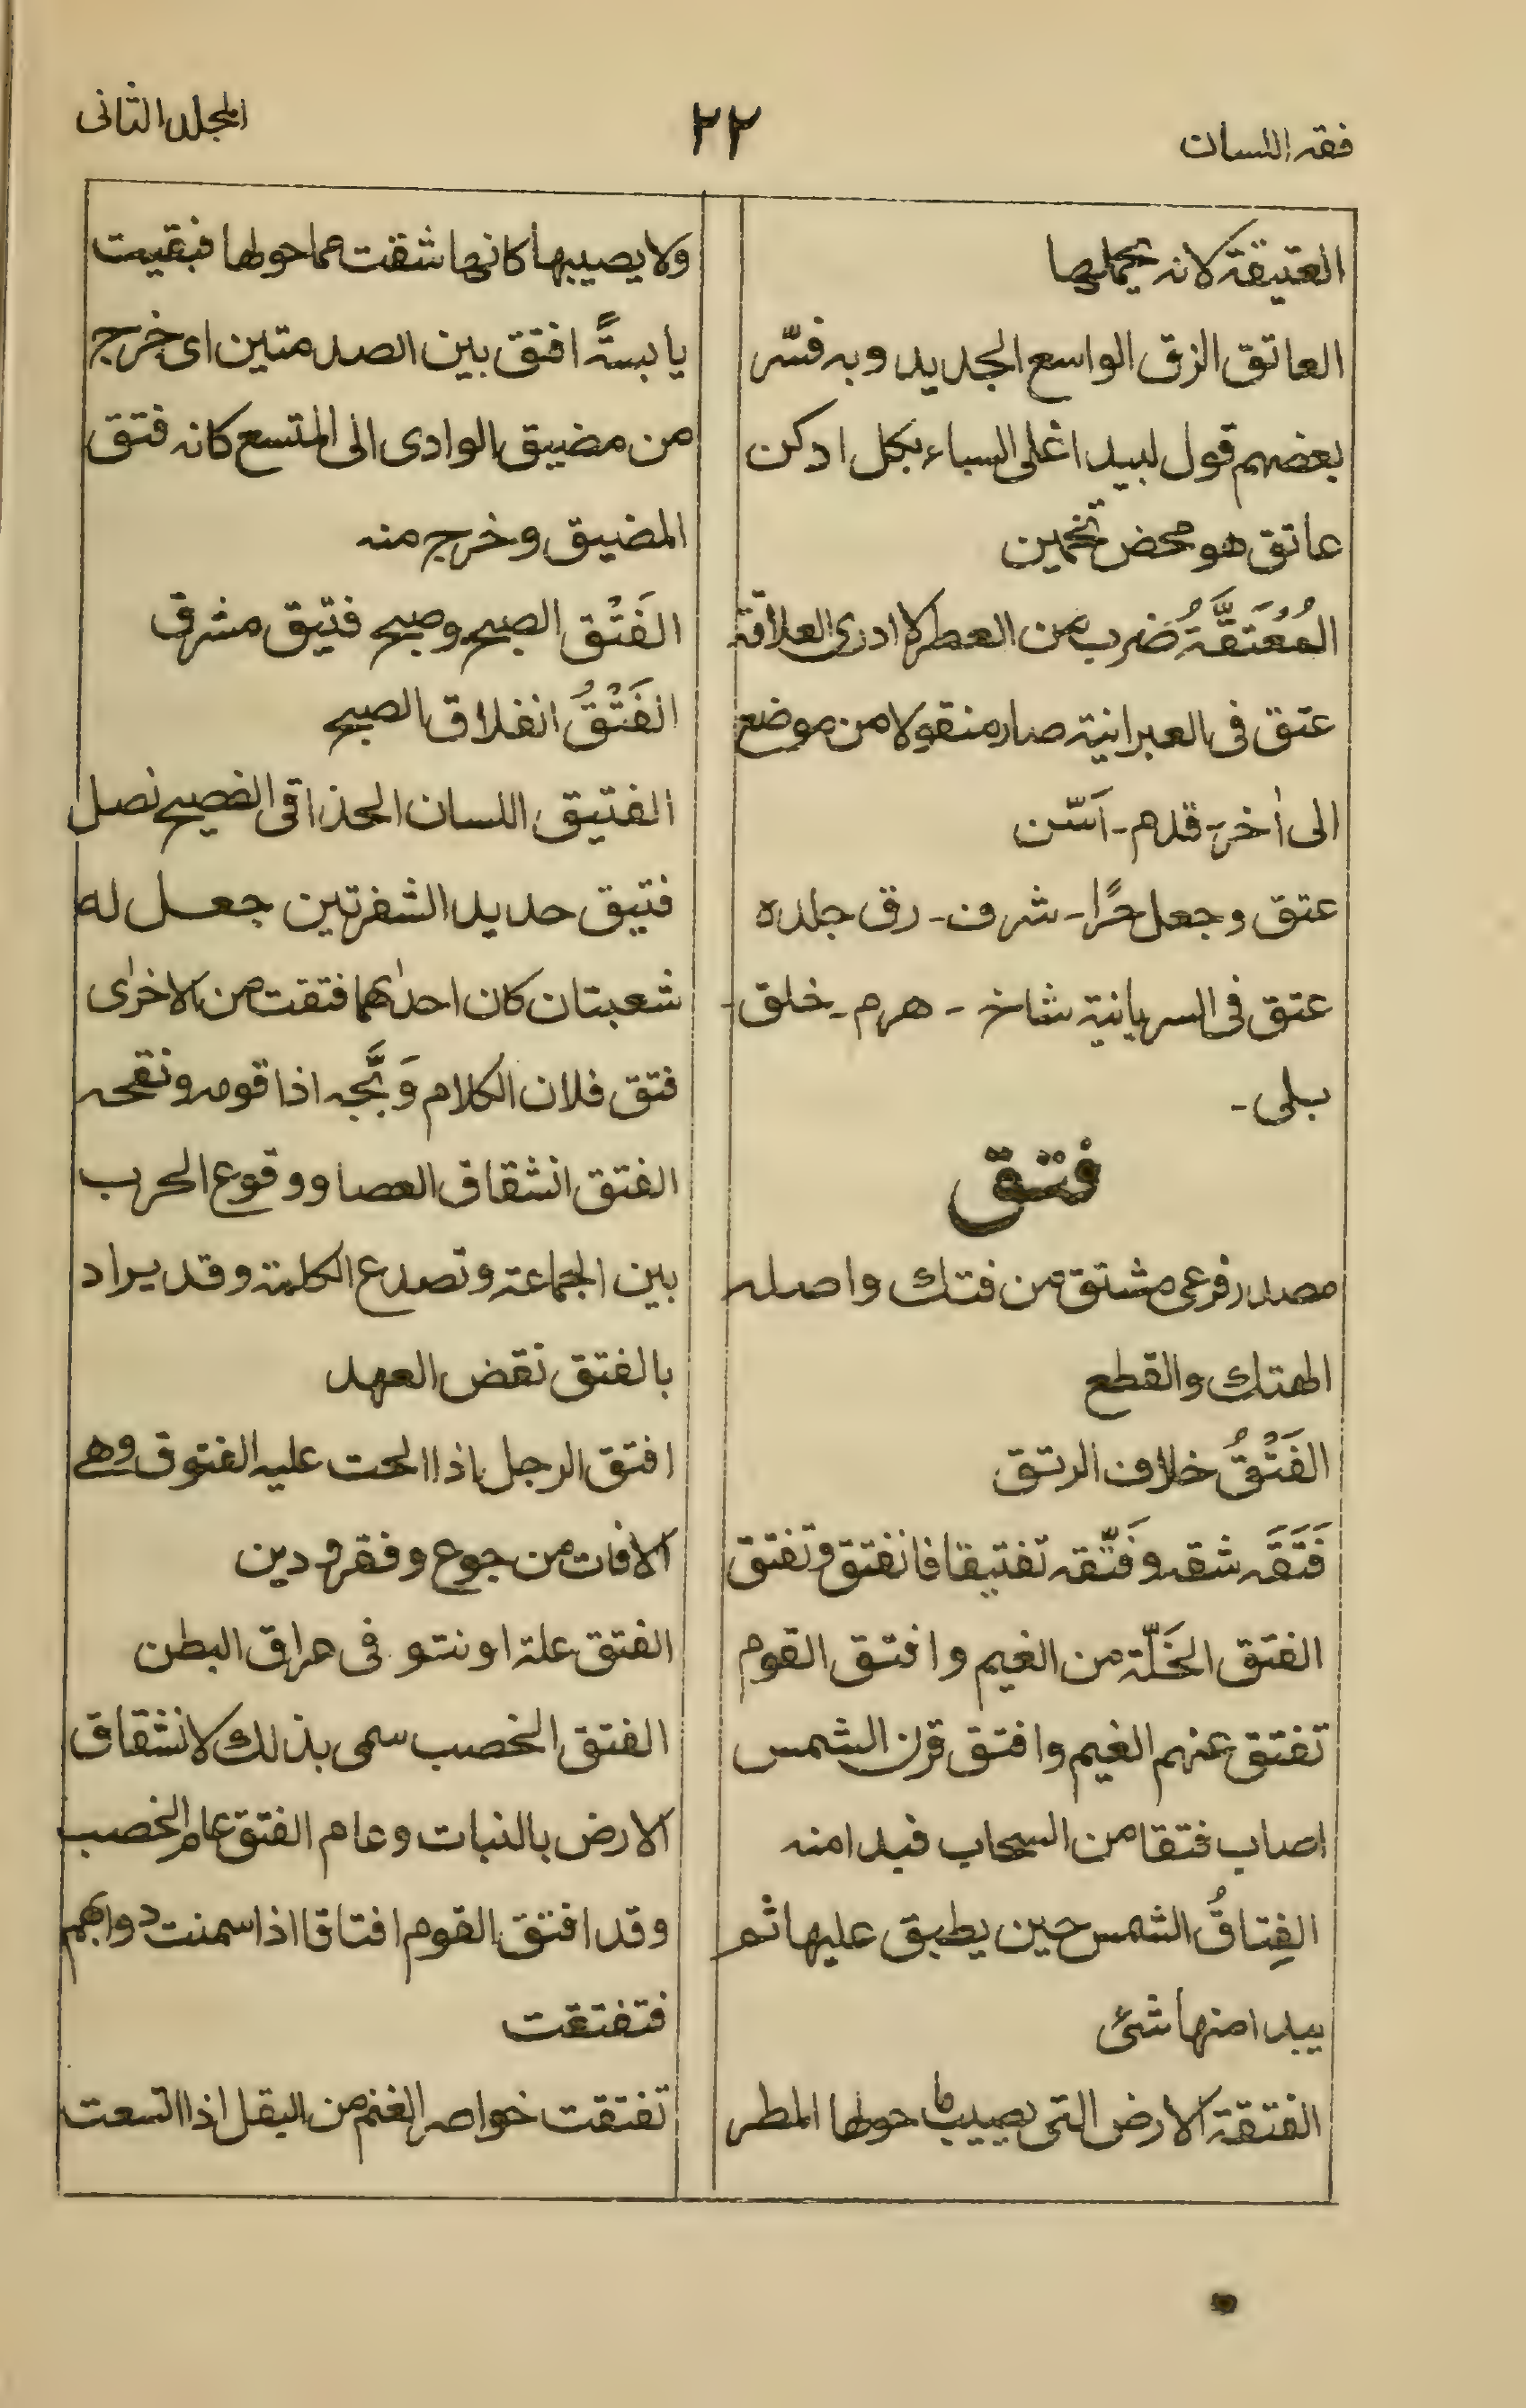 فقه اللسان
٢٢
المجلد الثانى
العتيقة لانه يحملها
العاتق الزق الواسع الجديد وبه فسّر
بعضهم قول لبيد اغلى السباء بكل ادكن
عاتق هو محض تخمين
المُعَتَّقَةُ ضرب من العطر لا ادرى العلاقة
عتق فى العبرانية صار منقولا من موضع
الى أخر - قدم - اَسّن
عتق وجعل حرًا - شرف - رق جلده
عتق فى السريانية شاخ - هرم - خلق -
بلى -
فتق
مصدر فرعى مشتق من فتك واصله
الهتك والقطع
الفَتْقُ خلاف الرتق
فَتَقَه شقه وفَتّقه تفتيقا فانفتق وتفتق
الفتق الخَلّة من الغيم وافتق القوم
تفتق عنهم الغيم وافتق قرن الشمس
اصاب فتقا من السحاب فبدا منه
الفِتاقُ الشمس حين يطبق عليها ثم
يبدا منها شئ
الفتقة الارض التى يصيب ما حولها المطر
ولا يصيبها كانها شقت عما حولها فبقيت
يابسةً افتق بين الصدمتين اى خرج
من مضيق الوادى الى المتسع كانه فتق
المضيق وخرج منه
الفَتْق الصبح وصبح فتيق مشرق
الفَتْقُ انفلاق الصبح
الفتيق اللسان الحذاقى الفصيح نصل
فتيق حديد الشفرتين جعل له
شعبتان كان احداهما فتقت من الاخرى
فتق فلان الكلام وَبَّجه اذا قومه ونقحه
الفتق انشقاق العصا ووقوع الحرب
بين الجماعة وتصدع الكلمة وقد يراد
بالفتق نقض العهد
افتق الرجل اذا الحت عليه الفتوق وهے
الافات من جوع وفقر و دين
الفتق علة او نتو فى مراق البطن
الفتق الخصب سمى بذلك لانشقاق
الارض بالنبات وعام الفتق عام الخصب
وقد افتق القوم افتاقا اذا سمنت دوابهم
فتفتقت
تفتقت خواصر الغنم من البقل اذا اتسعت